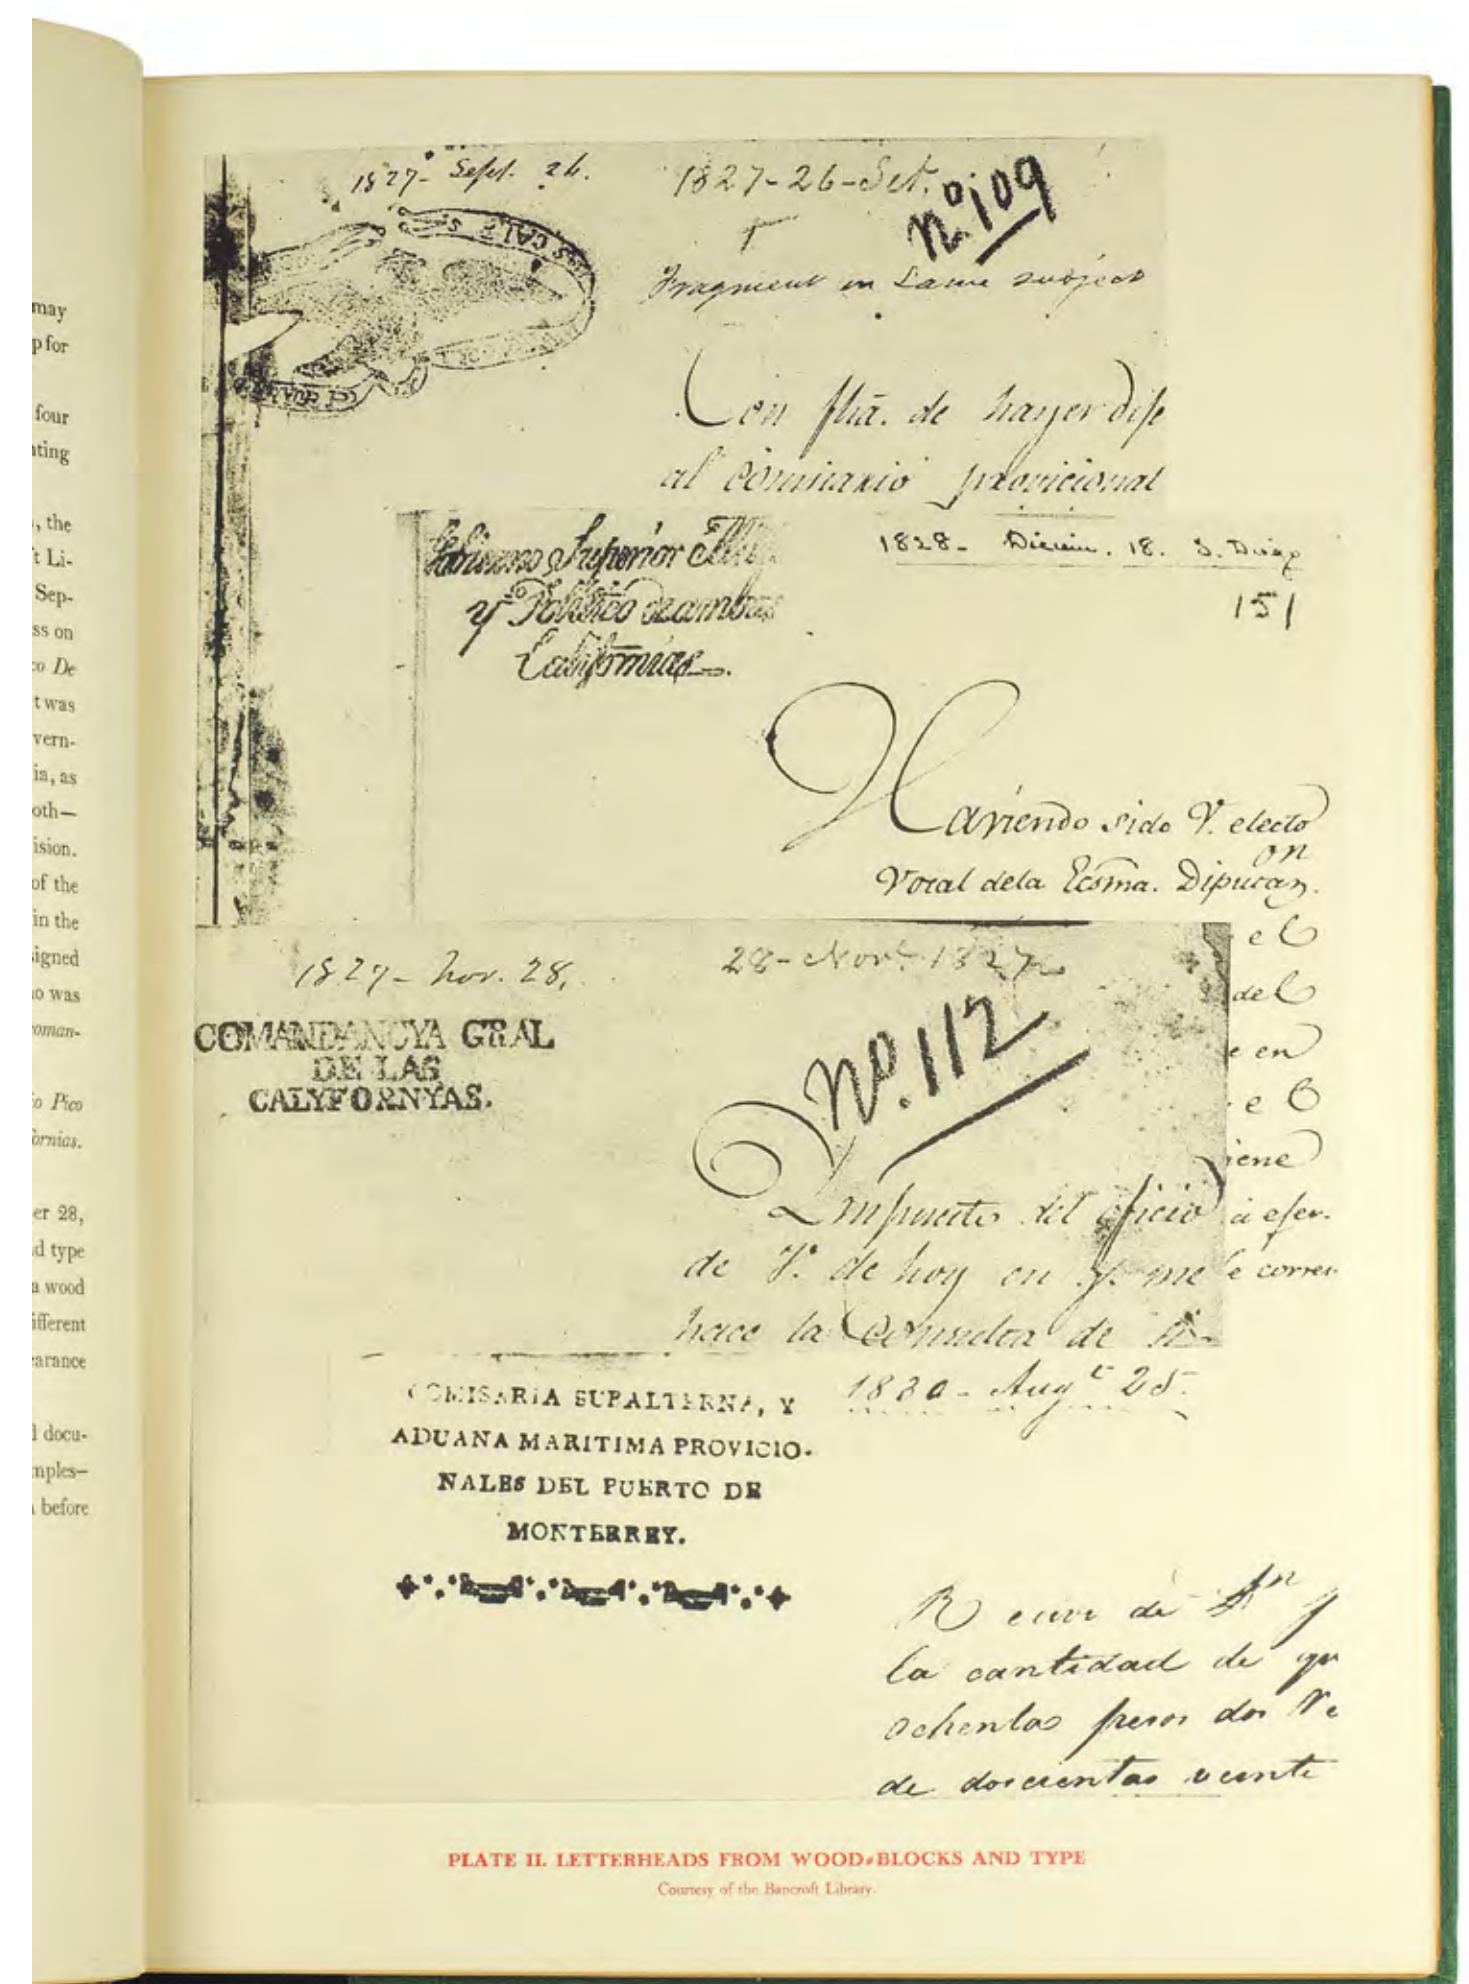 may
p for
four
ating
, the
t Li-
Sep-
ss on
co De
t was
vern-
ia, as
oth—
ision.
of the
in the
signed
o was
oman-
o Pico
fornias.
er 28,
d type
a wood
ifferent
earance
l docu-
mples—
before
1827- Sept. 26.
1827-26-Set.
No. 109
S CALS
Fragment on same subject
Con fha. de hayer
al comisario provicional
Gobierno Superior
y Politico de ambas
Californias.
1828- Diciem. 18. S. Diego
151
Haviendo sido V. electo
Vocal dela Ecsma. Diputaon.
el
del
e en
e
iene
1827- Nov. 28.
28-Nov. 1827
COMANDANCYA GRAL
DE LAS
CALYFORNYAS.
No. 112
Impuesto del oficio
de V. de hoy en q. me
hace la de
COMISARIA SUBALTERNA, Y
ADUANA MARITIMA PROVICIO-
NALES DEL PUERTO DE
MONTERREY.
1830- Augt 25.
la cantidad de
ochenta pesos dos
de doscientas veinte
PLATE II. LETTERHEADS FROM WOOD-BLOCKS AND TYPE
Courtesy of the Bancroft Library.